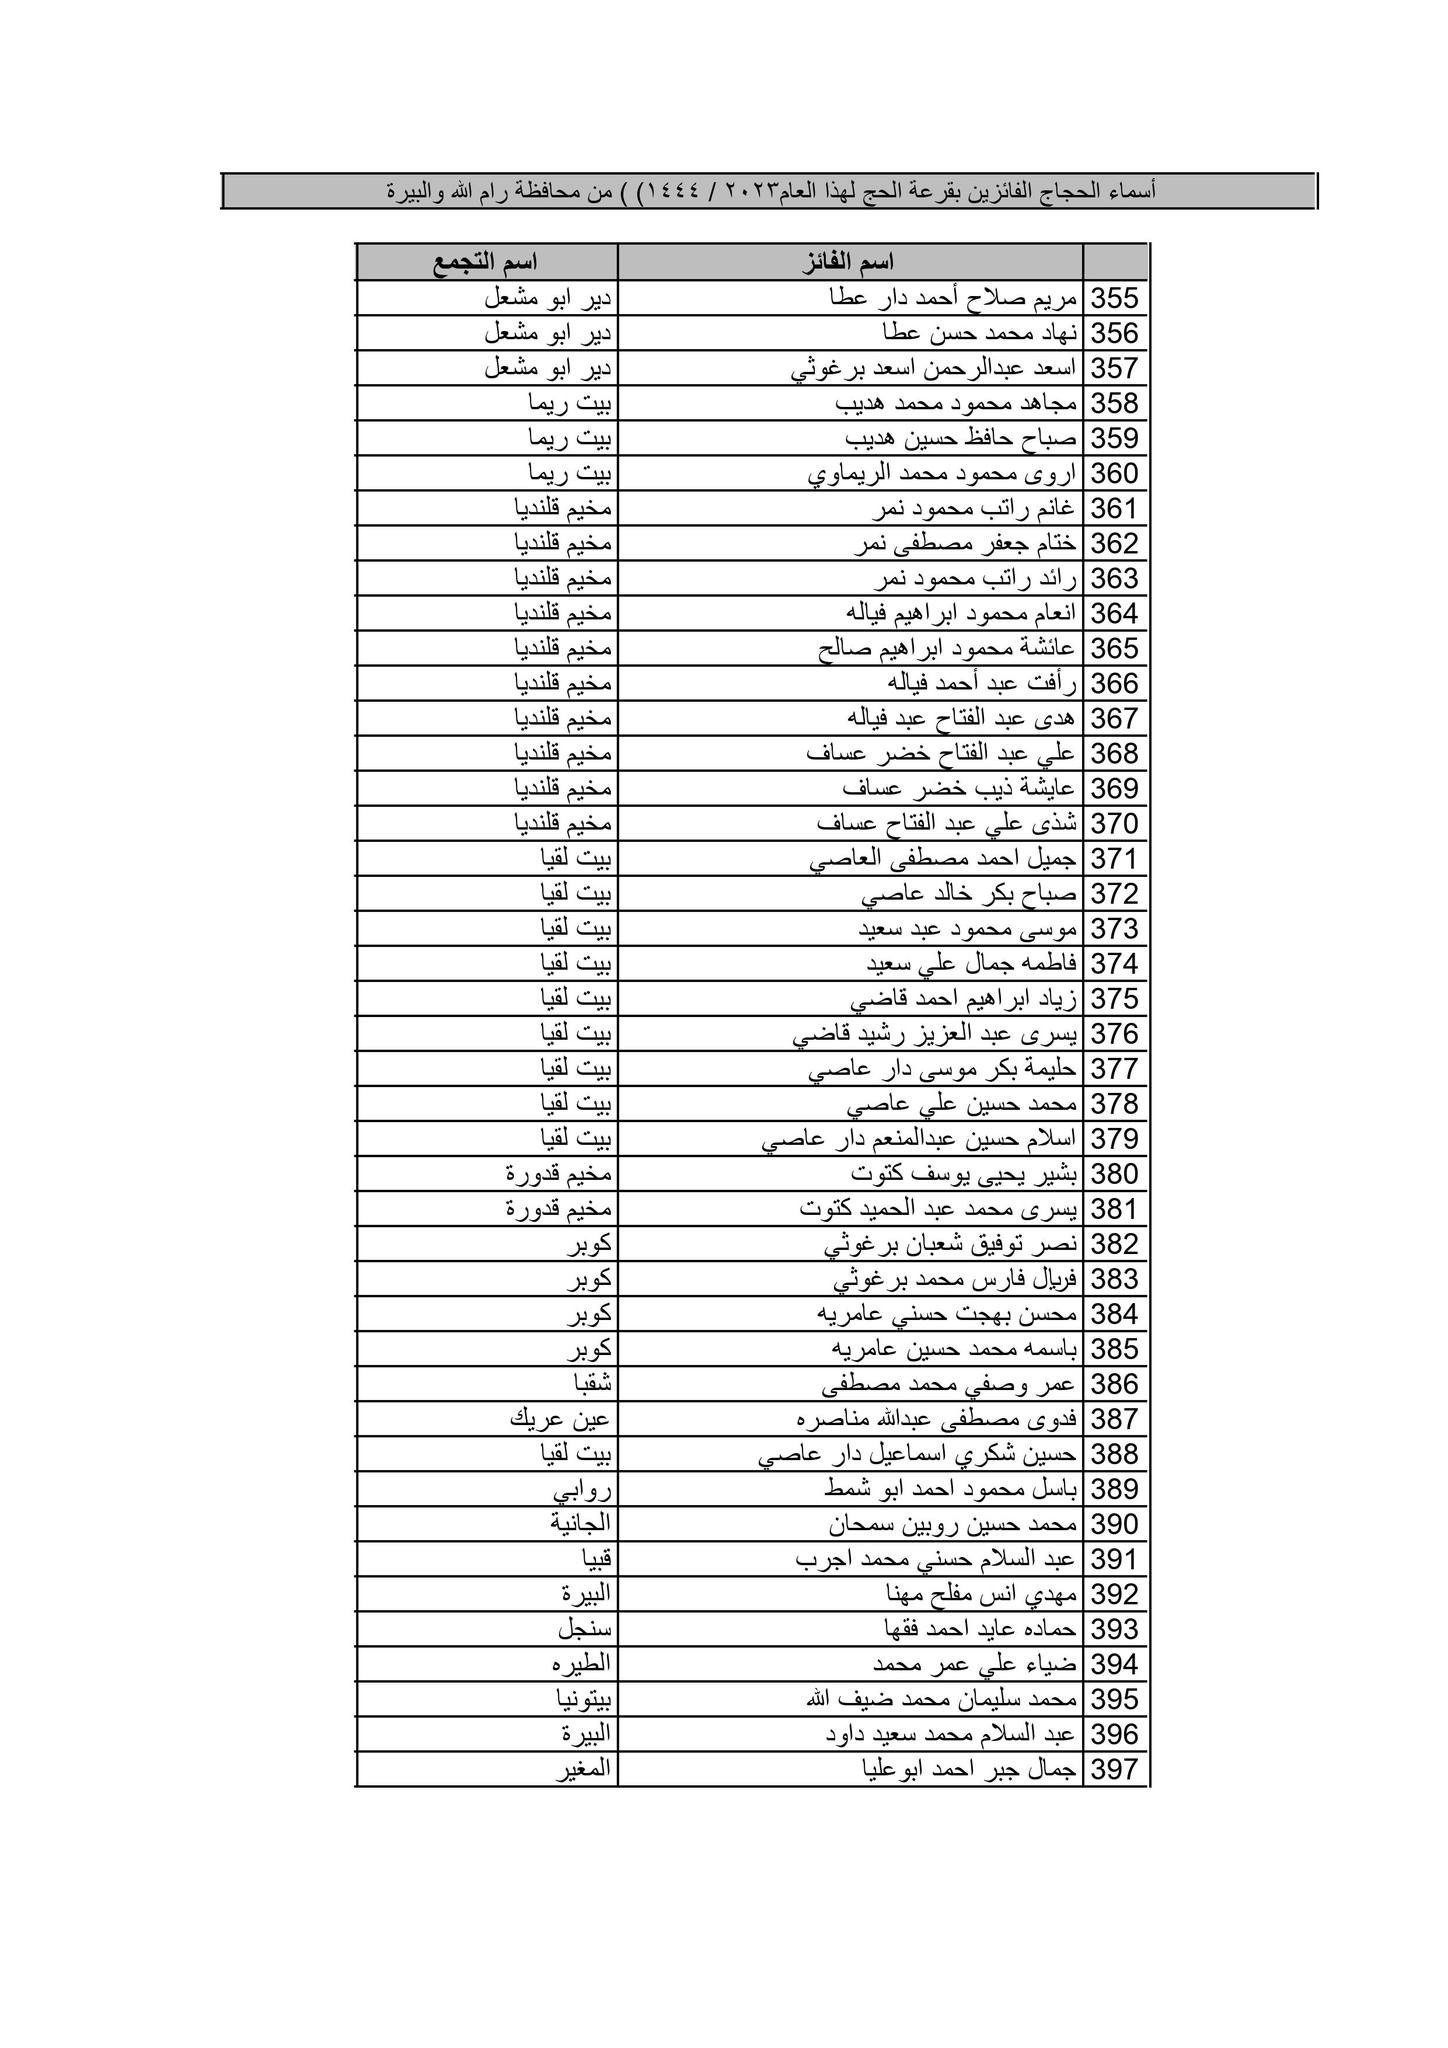 أسماء الحجاج الفائزين بقرعة الحج لهذا العام٢٠٢٣ / ١٤٤٤) ) من محافظة رام الله والبيرة
اسم الفائز اسم التجمع
355 مريم صلاح أحمد دار عطا دير ابو مشعل
356 نهاد محمد حسن عطا دير ابو مشعل
357 اسعد عبدالرحمن اسعد برغوثي دير ابو مشعل
358 مجاهد محمود محمد هديب بيت ريما
359 صباح حافظ حسين هديب بيت ريما
360 اروى محمود محمد الريماوي بيت ريما
361 غانم راتب محمود نمر مخيم قلنديا
362 ختام جعفر مصطفى نمر مخيم قلنديا
363 رائد راتب محمود نمر مخيم قلنديا
364 انعام محمود ابراهيم فياله مخيم قلنديا
365 عائشة محمود ابراهيم صالح مخيم قلنديا
366 رأفت عبد أحمد فياله مخيم قلنديا
367 هدى عبد الفتاح عبد فياله مخيم قلنديا
368 علي عبد الفتاح خضر عساف مخيم قلنديا
369 عايشة ذيب خضر عساف مخيم قلنديا
370 شذى علي عبد الفتاح عساف مخيم قلنديا
371 جميل احمد مصطفى العاصي بيت لقيا
372 صباح بكر خالد عاصي بيت لقيا
373 موسى محمود عبد سعيد بيت لقيا
374 فاطمه جمال علي سعيد بيت لقيا
375 زياد ابراهيم احمد قاضي بيت لقيا
376 يسرى عبد العزيز رشيد قاضي بيت لقيا
377 حليمة بكر موسى دار عاصي بيت لقيا
378 محمد حسين علي عاصي بيت لقيا
379 اسلام حسين عبدالمنعم دار عاصي بيت لقيا
380 بشير يحيى يوسف كتوت مخيم قدورة
381 يسرى محمد عبد الحميد كتوت مخيم قدورة
382 نصر توفيق شعبان برغوثي كوبر
383 فريال فارس محمد برغوثي كوبر
384 محسن بهجت حسني عامريه كوبر
385 باسمه محمد حسين عامريه كوبر
386 عمر وصفي محمد مصطفى شقبا
387 فدوى مصطفى عبدالله مناصره عين عريك
388 حسين شكري اسماعيل دار عاصي بيت لقيا
389 باسل محمود احمد ابو شمط روابي
390 محمد حسين روبين سمحان الجانية
391 عبد السلام حسني محمد اجرب قبيا
392 مهدي انس مفلح مهنا البيرة
393 حماده عايد احمد فقها سنجل
394 ضياء علي عمر محمد الطيره
395 محمد سليمان محمد ضيف الله بيتونيا
396 عبد السلام محمد سعيد داود البيرة
397 جمال جبر احمد ابوعليا المغير